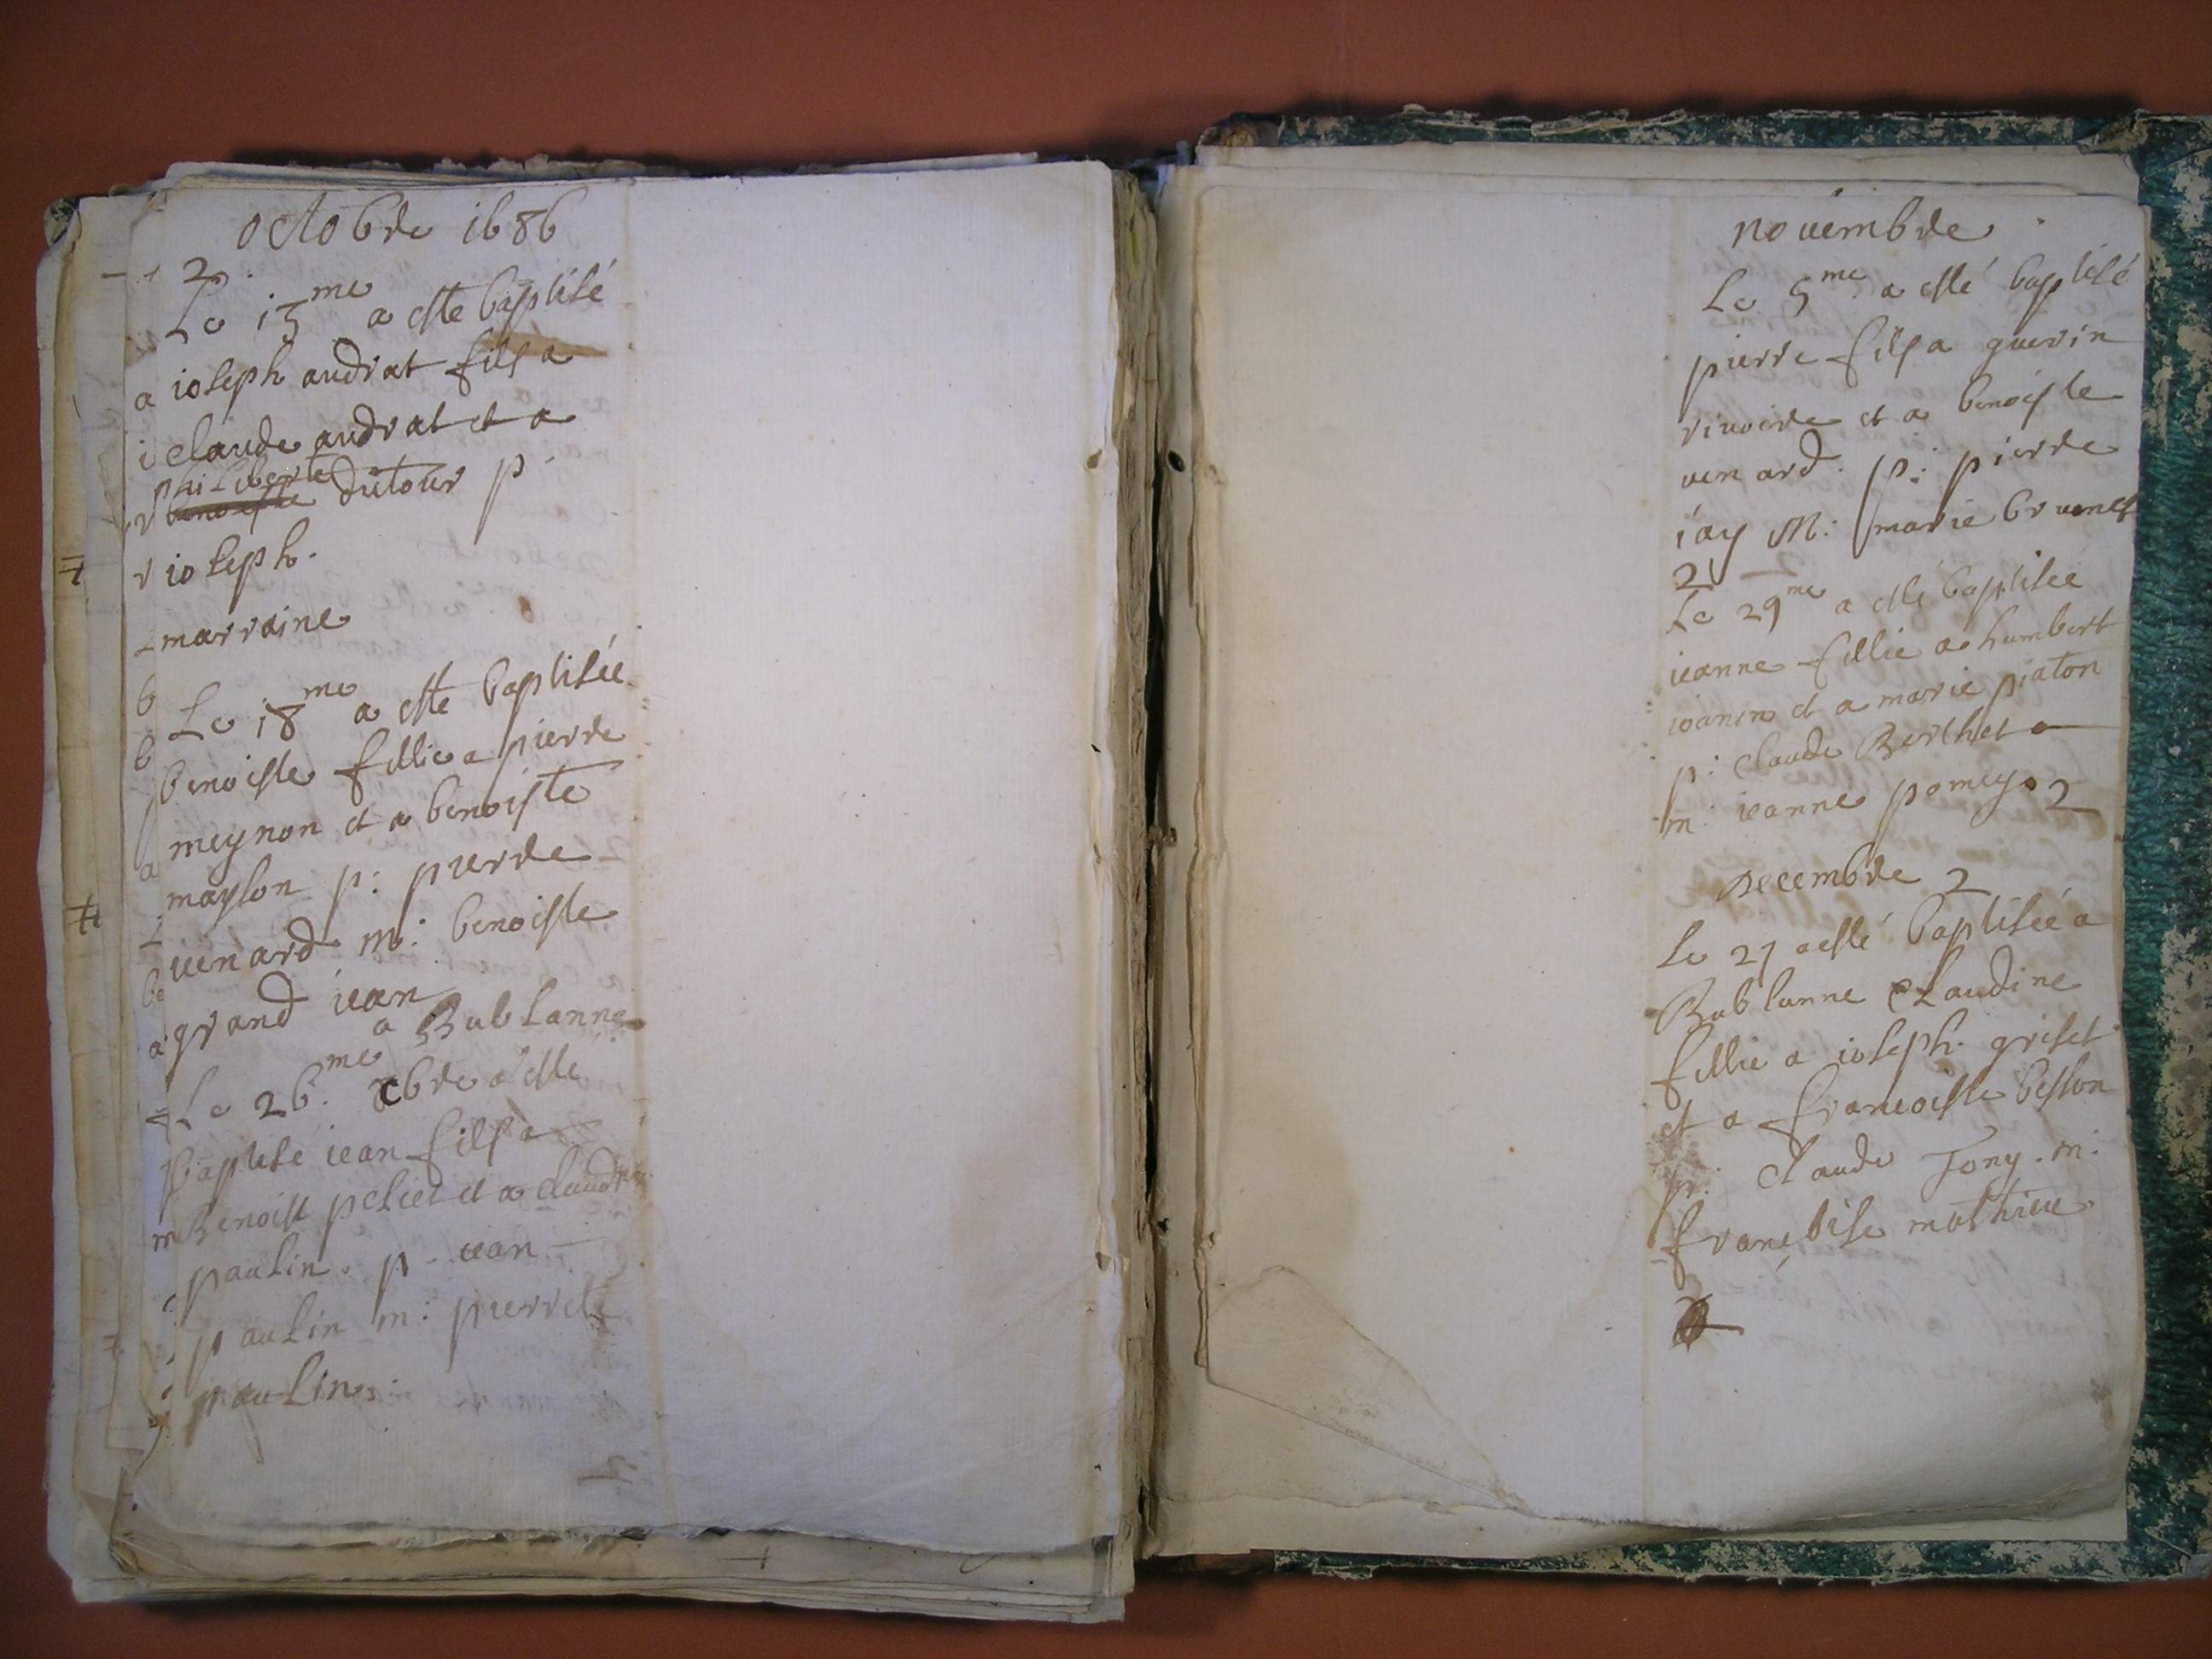 octobre 1686
2
Le 15me a este baptisé
ioseph audrat fils a
claude audrat et a
philiberte
benoiste dutour p
ioseph.
marraine
Le 18me a este baptisée
benoiste fillie a pierre
meynon et a benoiste
mayson p: pierre
uenard m: benoiste
grand iean
a Bublanne
Le 26me 8bre a este
Baptisé iean fils a
Benoist peliet et a claudine
paulin. p. iean
paulin m: pierrete
pauline.
novembre
Le 5me a esté baptisé
pierre fils a guerin
riuoire et a benoiste
uenard. p: pierre
iay M: marie brunet
2
Le 29me a esté baptisée
ieanne fillie a humbert
ioanin et a marie piaton
p: claude Berthet
m: ieanne pomey 2
Decembre 2
Le 27 a esté baptisée a
Bublanne Claudine
fillie a ioseph griset
et a francoise besson
p: claude Tony. m:
françoise mathieu